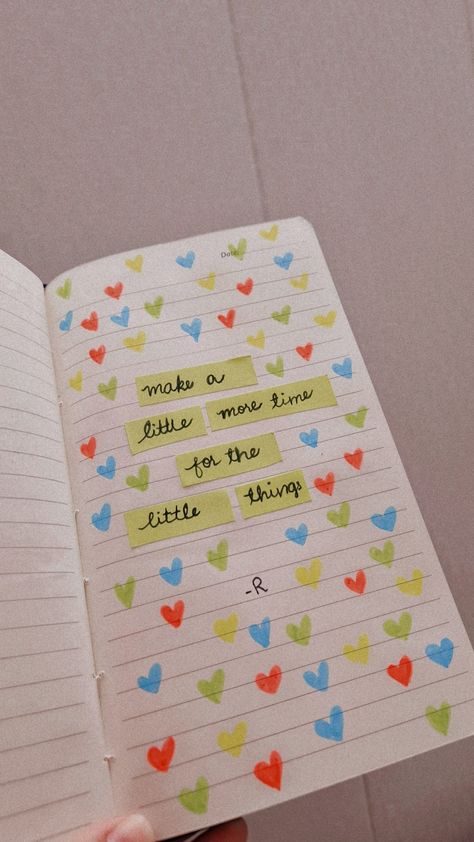 Date:
make a
little more time
for the
little things
-R